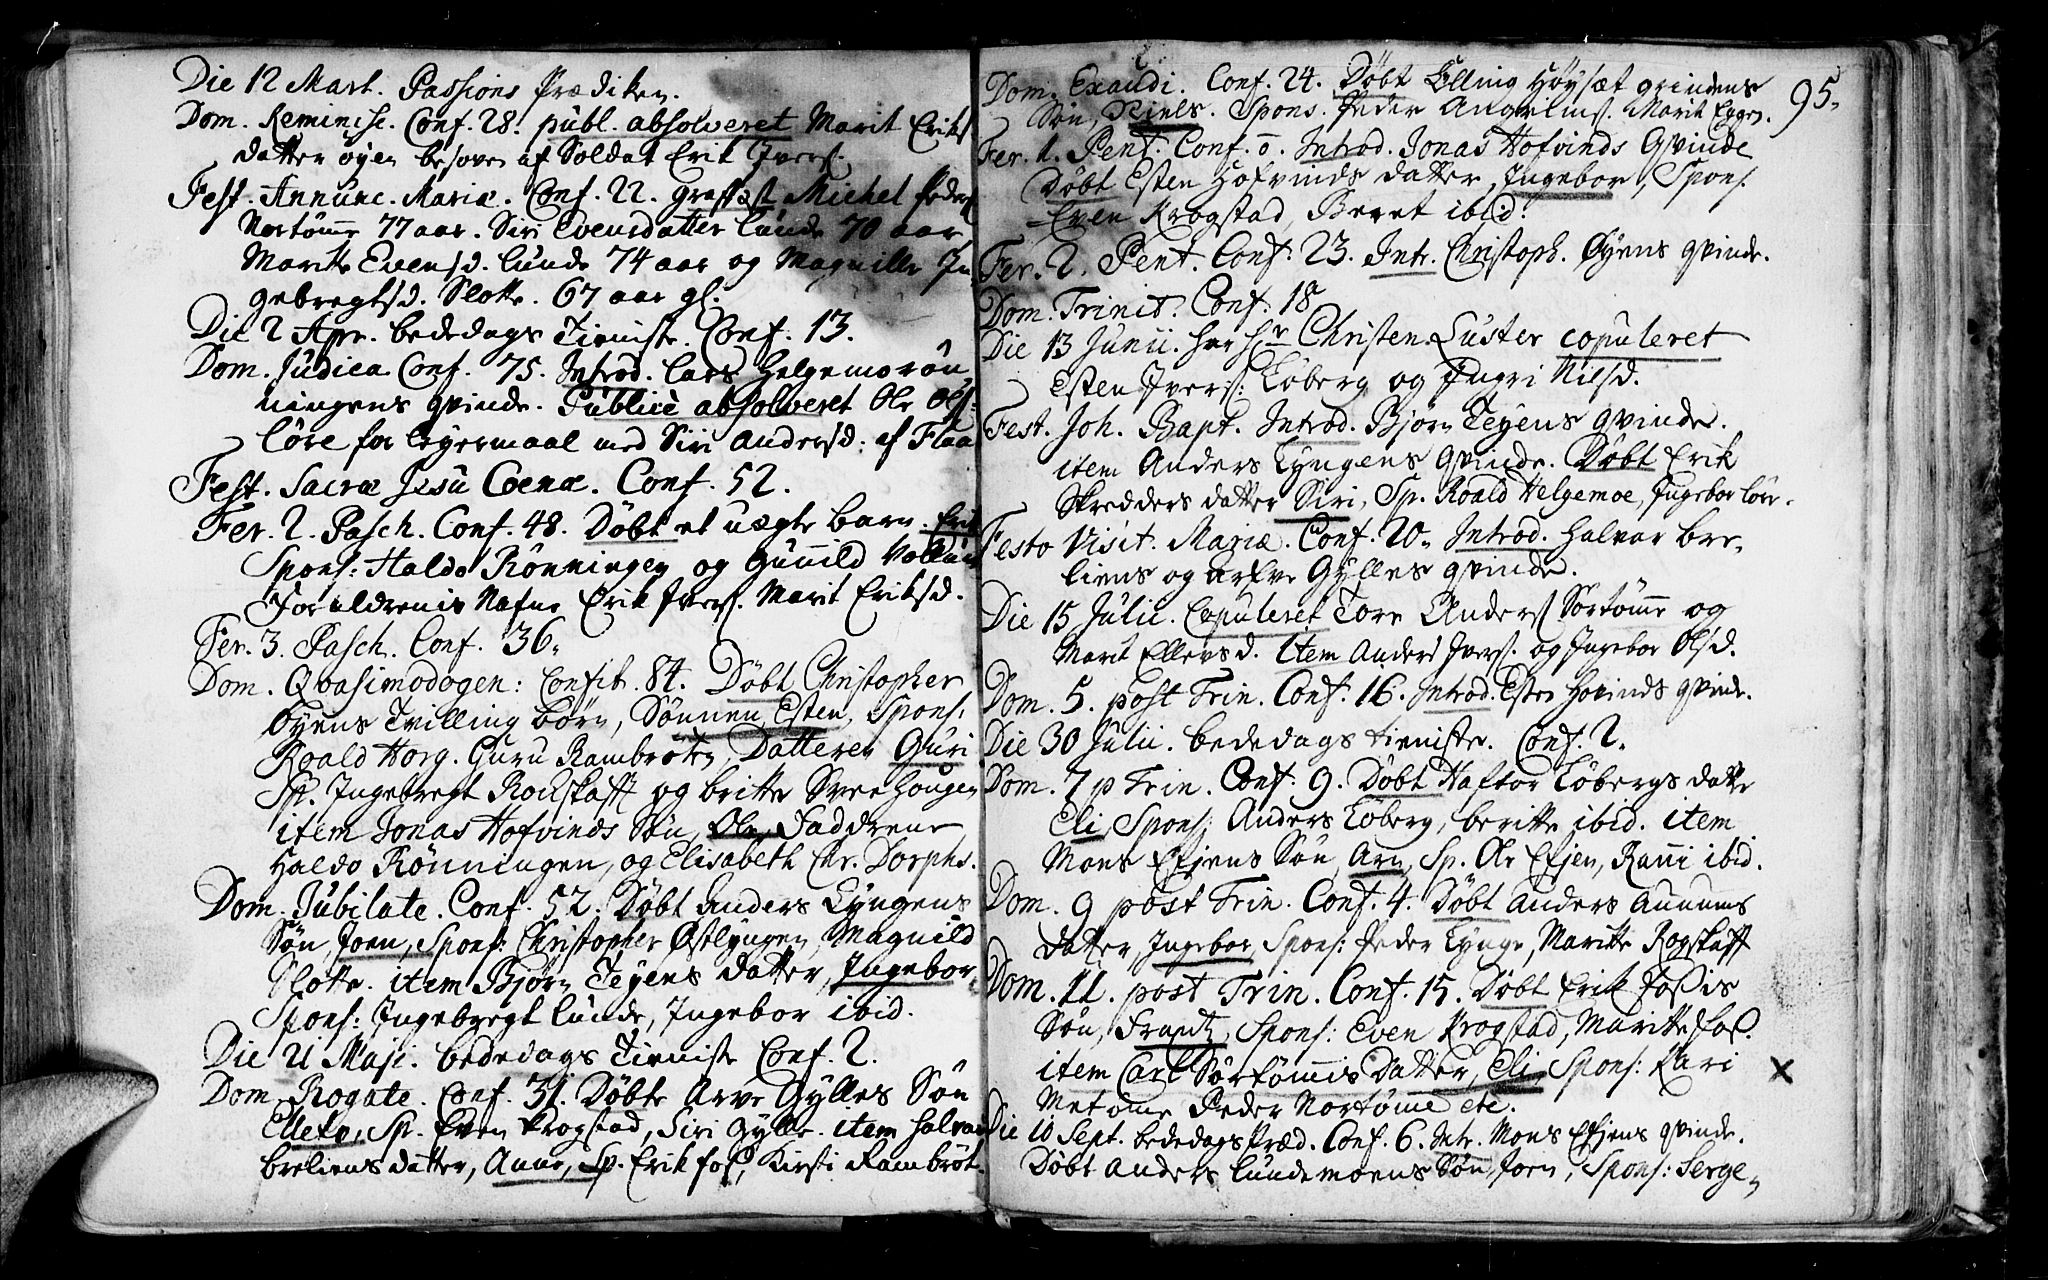 Die 12 Mart. Passions Prædiken.
Dom. Reminisc. Conf. 28. publ. absolveret Marit Eriks
datter øyen besoven af Soldat Erik Ivers.
Fest. Annunc. Mariæ. Conf. 22. græsfæst Michel Peders
Nortømme 77 aar. Siri Evensdatter Lunde 70 aar
Maritte Evensd. Lunde 74 aar og Magnille In
gebregtsd. Slotte. 67 aar gl.
Die 2 Apr. bededags Tieniste. Conf. 13.
Dom. Judica Conf. 75. Introd. Lars Helgemorøn
ningens qvinde. Publicè absolveret Ole Ols:
løre for leyermaal med Siri Andersd: af Flaa
Fest. Sacræ Jesu Coenæ. Conf. 52.
Fer. 2. Pasch. Conf. 48. Døbt et uægte barn. Erik
Spons: Haldo Rönningen og Gunild Vollan
Forældrenis Nafne Erik Ivers. Marit Eriksd.
Fer. 3. Pasch. Conf. 36.
Dom. Qvasimodogen: Confit. 84. Døbt Christopher
Øyens Tvilling børn, Sønnen Esten, Spons:
Roald Horg. Guru Rambrøten, Datteren Guri
Sp. Ingebregt Rockskafft og britte Sveehougen
item Jonas Hofvinds Søn, Ole, Faddrene
Haldo Rønningen, og Elisabeth Chr. Dorphs.
Dom. Jubilate. Conf. 52. Døbt Anders Lyngens
Søn, Joen, Spons: Christopher Østlyngen, Magnild
Slotte. item Bjørn Teyens datter, Ingebor,
Spons: Ingebregt Lunde, Ingebor ibid.
Die 21 Maji. bededags Tieniste Conf. 2.
Dom. Rogate. Conf. 31. Døbte Arve Gylles Søn
Ellef, Sp. Even Krogstad, Siri Gylle. item Halvar
breliens datter, Anne, Sp. Erik fos, Kirsti Rambrøt.
95.
Dom. Exaudi. Conf. 24. Døbt Elling Høysæt grindens
Søn, Niels. Spons. Peder Marit Eggen.
Fer. 1. Pent. Conf. 0. Introd. Jonas Hofvinds Qvinde
Døbt Esten Hofvinds datter, Ingebor, Spons.
Even Krogstad, Beret ibid.
Fer. 2. Pent. Conf. 23. Intr. Christoph. Øyens qvinde.
Dom. Trinit. Conf. 18
Die 13 Junii. har Hr Christen Luster copuleret
Esten Ivers. Løberg og Ingri Nilsd.
Fest. Joh. Bapt. Introd. Bjørn Teyens qvinde.
item Anders Lyngens qvinde. Døbt Erik
Skredders datter Siri, Sp. Roald Helgemoe, Ingebor lør.
Festo Visit. Mariæ. Conf. 20. Introd. Halvar bre,
liens og Arfve Gylles qvinde.
Die 15 Julii. Copuleret Tore Anders Sørtømme og
Marit Ellevsd. Item Anders Ivers. og Ingebor Olsd.
Dom. 5. post Trin. Conf. 16. Introd. Esten Hovinds qvinde.
Die 30 Julii. bededags tieniste. Conf. 2.
Dom. 7 p Trin. Conf. 9. Døbt Haftor Løbergs datte
Eli, Spons: Anders Løberg, beritte ibid. item
Mons Efjens Søn, Arn, Sp. Ole Efjen, Ranni ibid.
Dom. 9 post Trin. Conf. 4. Døbt Anders Aunums
datter, Ingebor, Spons: Peder Lynge, Maritte Rogskafft
Dom. 11. post Trin. Conf. 15. Døbt Erik Fossis
Søn, Frantz, Spons: Even Krogstad, Maritte Fos.
item Carl Sørtømmis datter, Eli, Spons: Kari
Metomme Peder Nortømme etc.
Die 10 Sept. bededags Præd. Conf. 6. Intr. Mons Efjens qvinde.
Døbt Anders Lundemoens Søn, Joen, Spons: Serge,